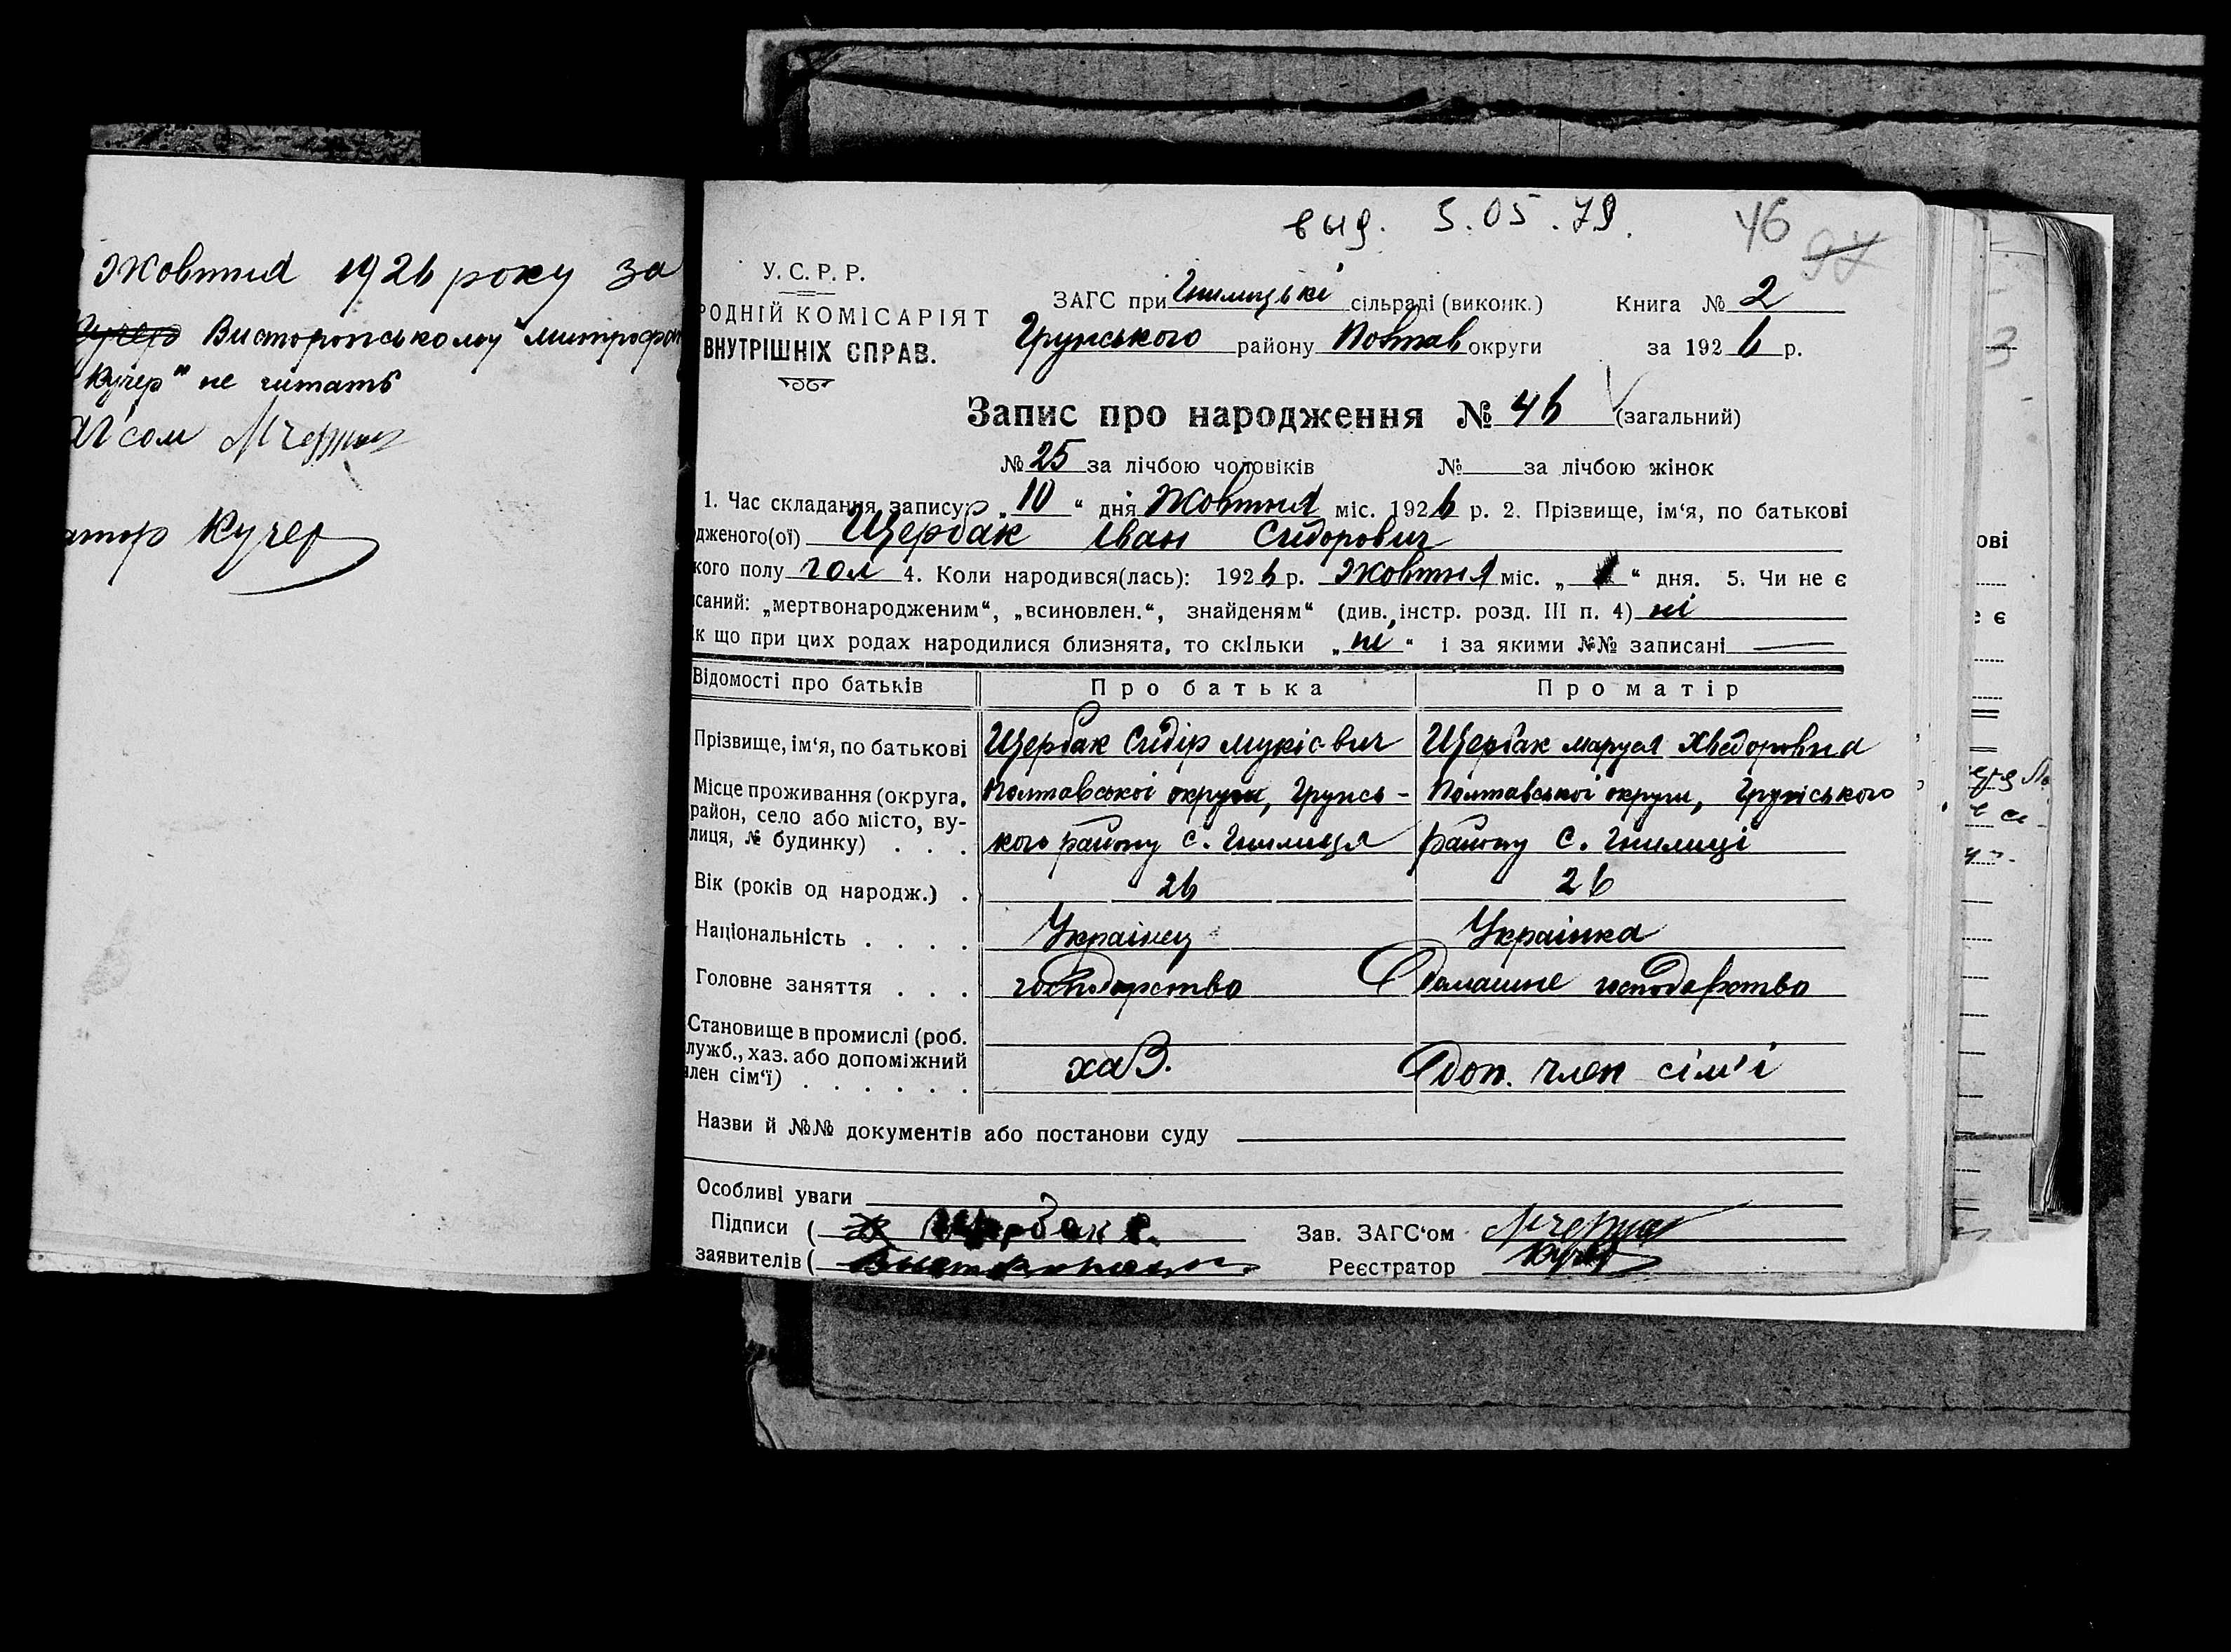 Жовтня 1926 року за
Кучер Висторопському Митрофан
"Кучер" не читать
аг'сом
атор Кучер
выд. 5.05.79.
46
97
У.С.Р.Р.
РОДНІЙ КОМІСАРІЯТ
ВНУТРІШНІХ СПРАВ.
ЗАГС при Гнилицькі сільраді (виконк.)
Грунського району Полтав округи
Книга № 2
за 1926 р.
Запис про народження № 46 (загальний)
№ 25 за лічбою чоловіків № за лічбою жінок
1. Час складання запису „10“ дня Жовтня міс. 1926 р. 2. Прізвище, ім‘я, по батькові
дженого(ої) Щербак Іван Сидорович
кого полу чол 4. Коли народився(лась): 1926 р. Жовтня міс. „ “ дня. 5. Чи не є
саний: „мертвонародженим“, „всиновлен.“, знайденям“ (див. інстр. розд. III п. 4) ні
к що при цих родах народилися близнята, то скільки „ні“ і за якими №№ записані —
Відомості про батьків Про батька Про матір
Прізвище, ім‘я, по батькові Щербак Сидір Мукісвич Щербак Маруся Хведоровна
Місце проживання (округа, район, село або місто, вулиця, № будинку) . . .
Полтавської округи, Грунсь-
кого району с. Гнилиця
Полтавської округи, Грунського
району с. Гнилиці
Вік (років од народж.) . 26 26
Національність . . . . Українец Українка
Головне заняття . . . господарство Домашнє господарство
Становище в промислі (роб.
лужб., хаз. або допоміжний
лен сім‘ї) . . . . . . хаз. Доп. член сім'ї
Назви й №№ документів або постанови суду
Особливі уваги
Підписи ( Щербак С. Зав. ЗАГС‘ом
заявителів ( Реєстратор Кучер
ові
є